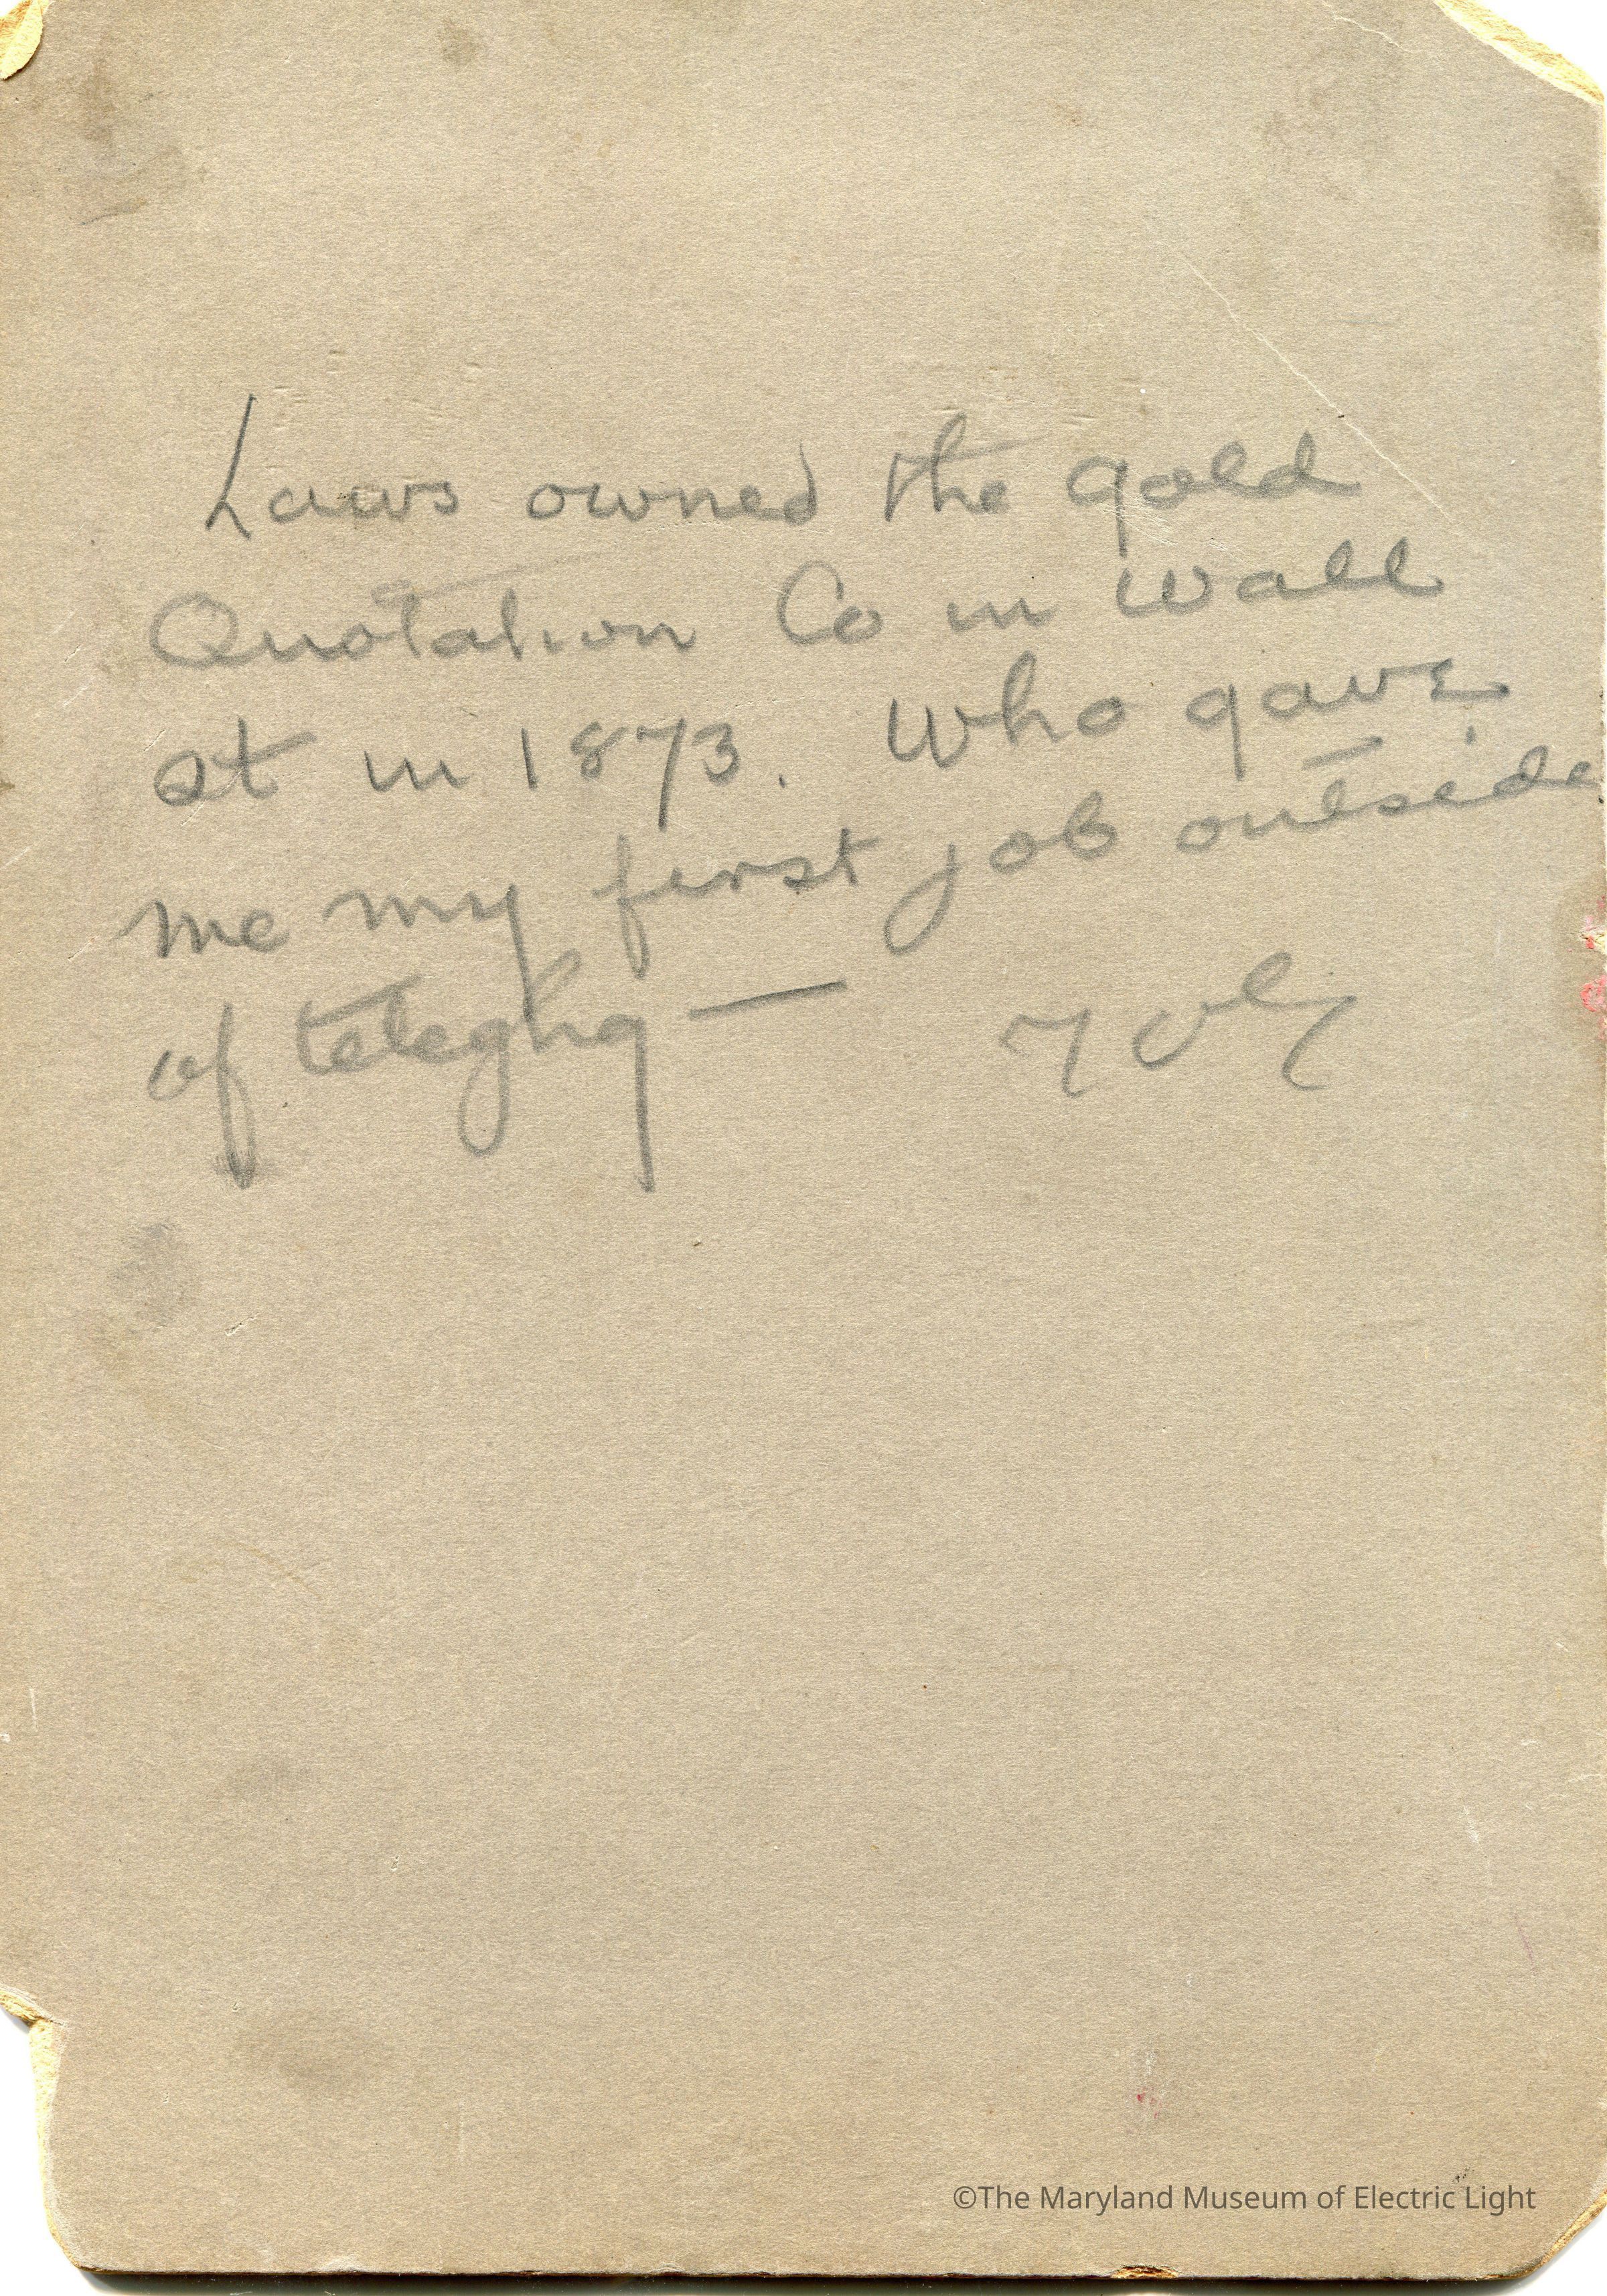 Laws owned the gold
Quotation Co in Wall
st in 1873. Who gave
me my first job outside
of teleghy —
©The Maryland Museum of Electric Light